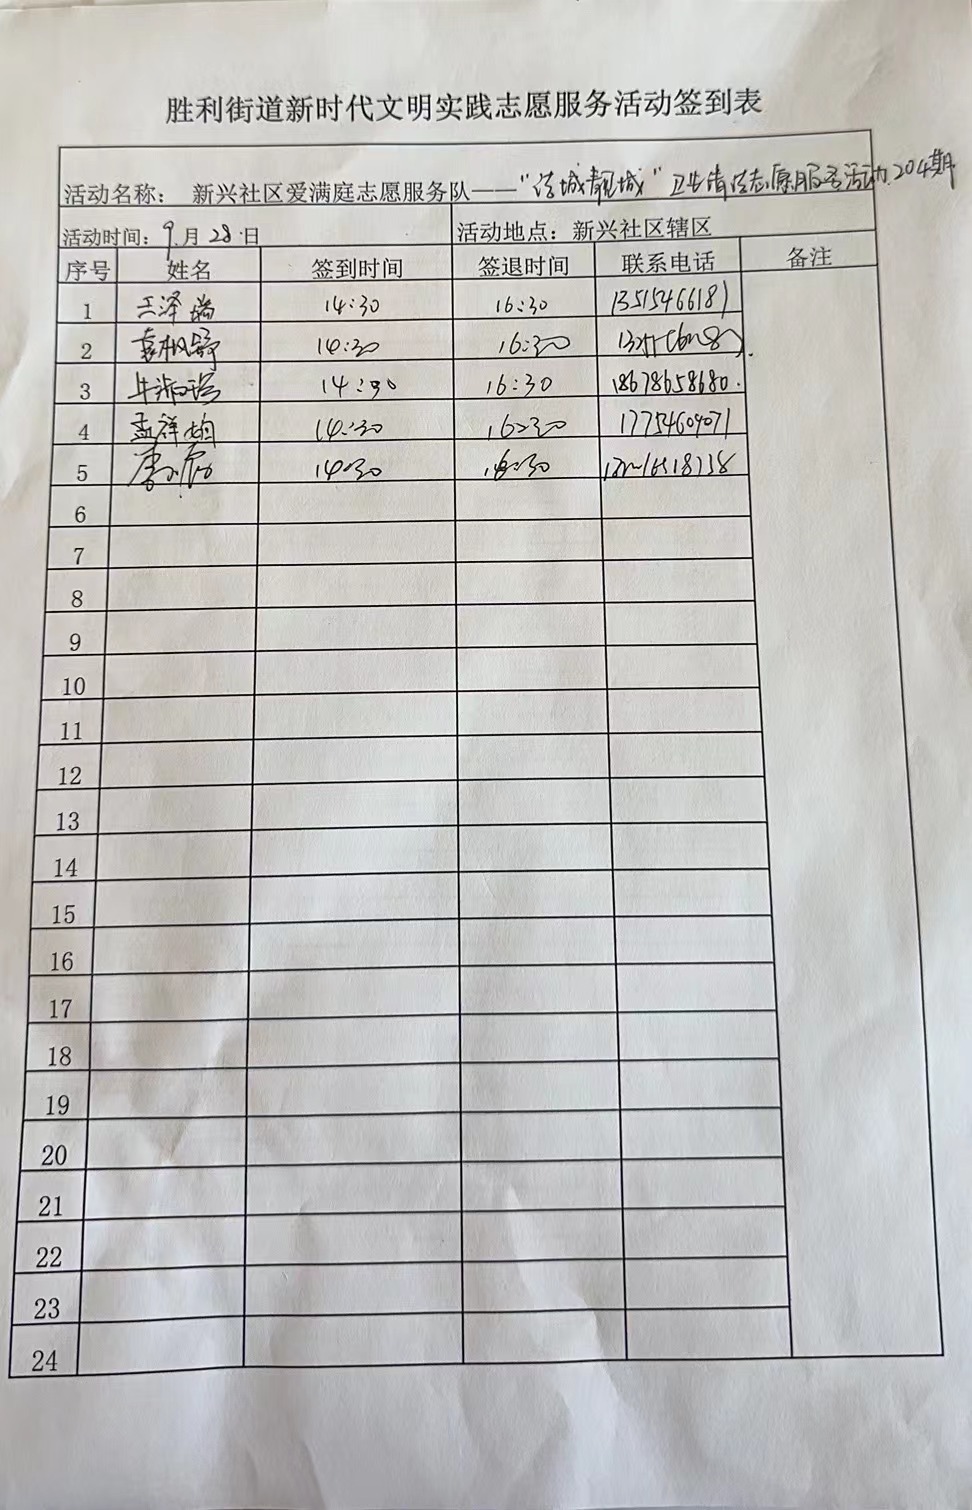 胜利街道新时代文明实践志愿服务活动签到表
活动名称： 新兴社区爱满庭志愿服务队——“洁城靓城”卫生清洁志愿服务活动.204期
活动时间：9月28日 活动地点：新兴社区辖区
序号 姓名 签到时间 签退时间 联系电话 备注
1 王泽瑞 14:30 16:30 13515466181
2 14:30 16:30
3 14:30 16:30 18678658680.
4 孟祥均 14:30 16:30 17754609071
5 14:30 16:30
6
7
8
9
10
11
12
13
14
15
16
17
18
19
20
21
22
23
24